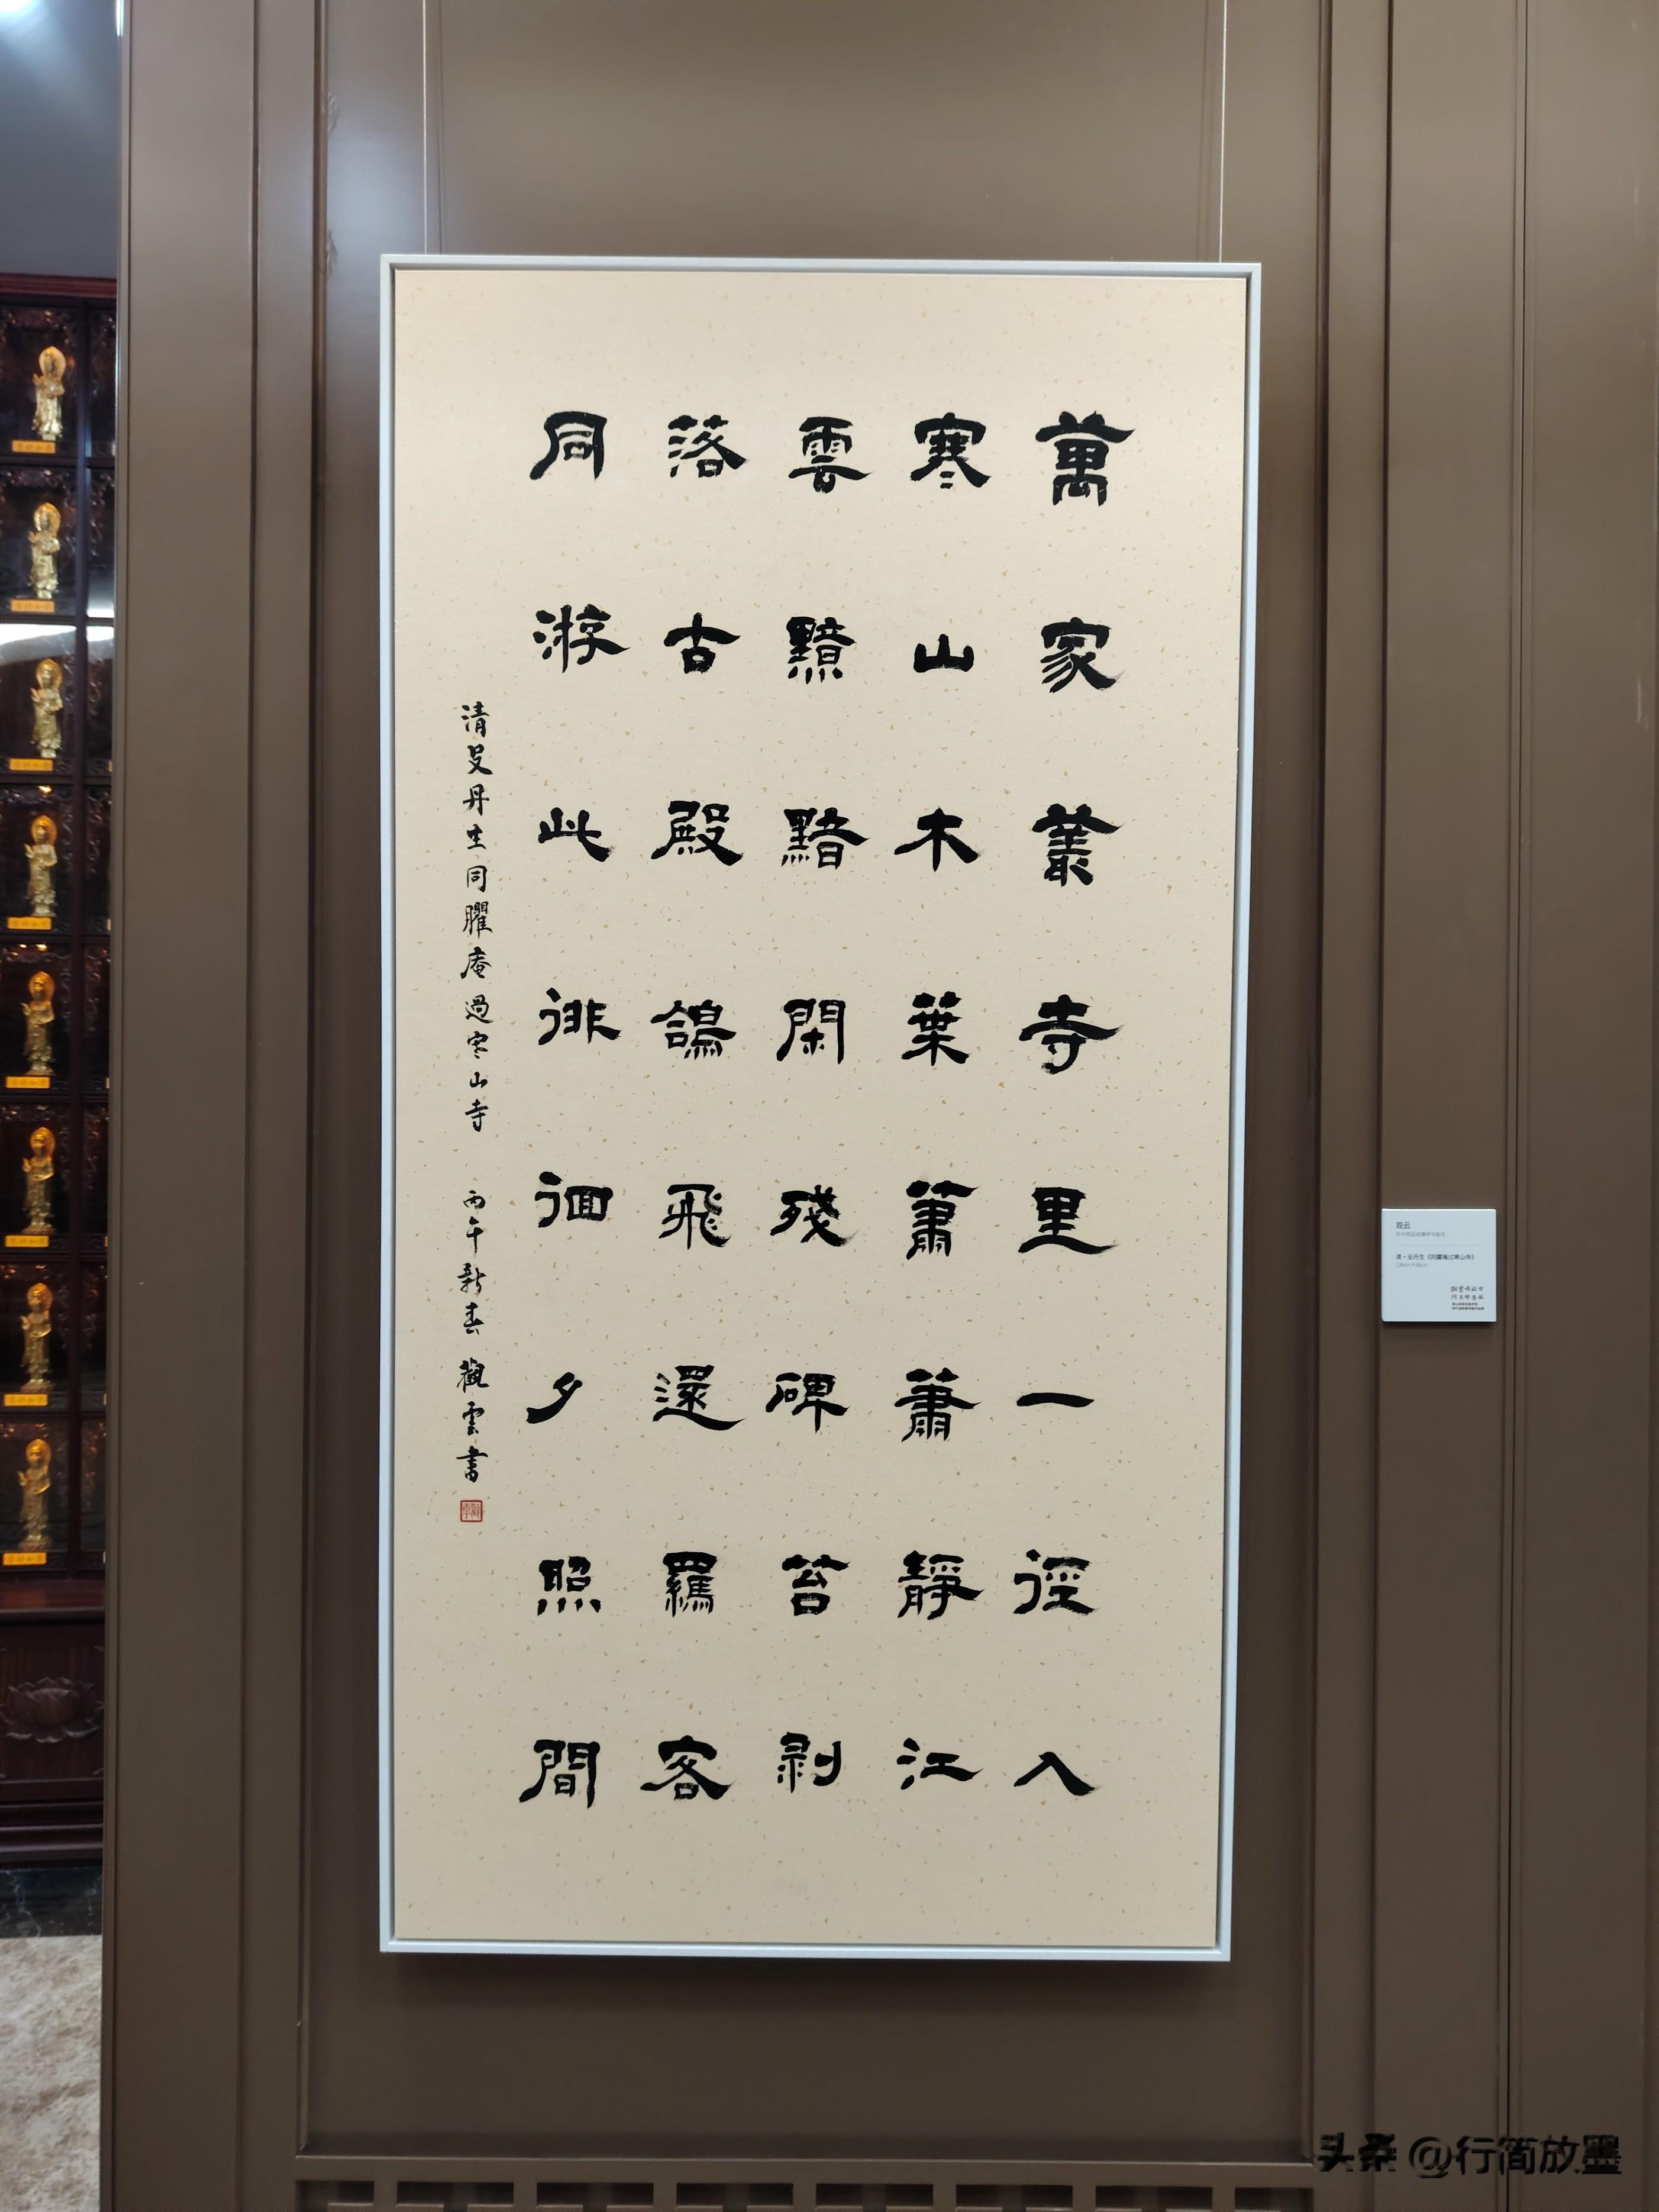 萬家叢寺里一徑入
寒山木葉蕭蕭靜江
雲黯黯閑殘碑苔剝
落古殿鴿飛還羈客
同游此徘徊夕照間
清殳丹生同臞庵過寒山寺 丙午新春 觀雲書
观云
清·殳丹生《同臞庵过寒山寺》
头条 @行简放墨